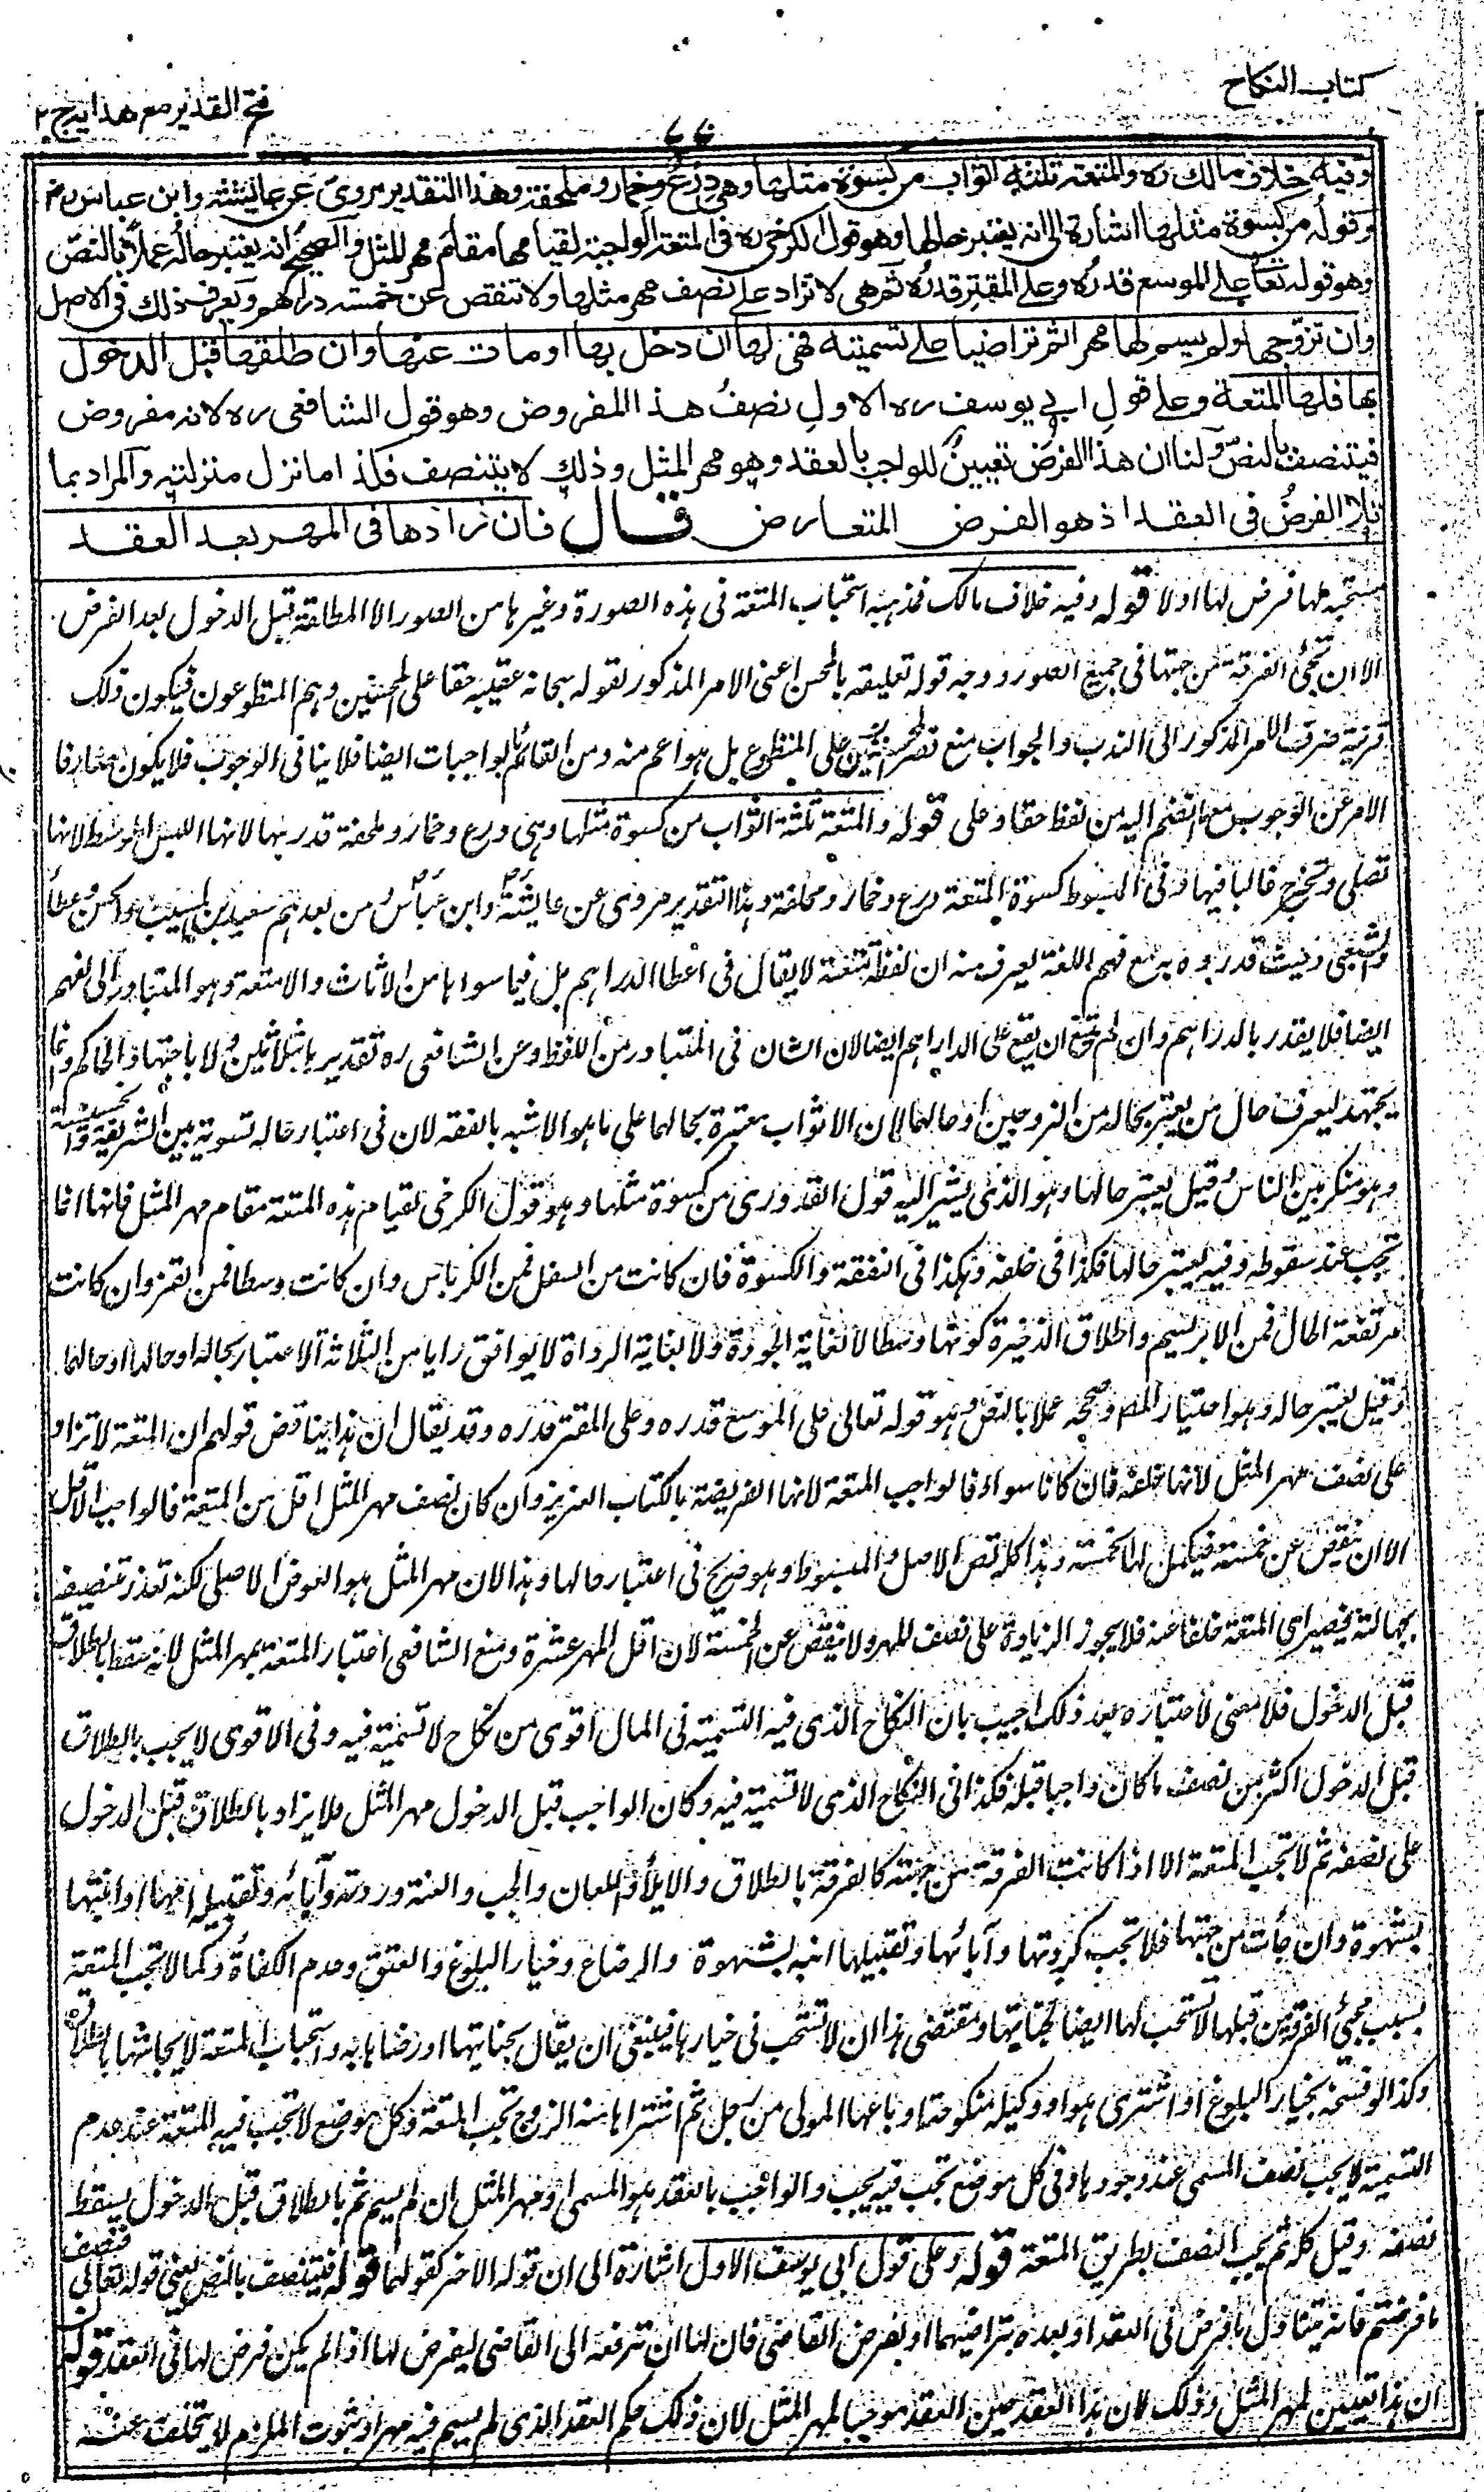 كتاب النكاح
فتح القدير مع هدايه ج ٢
وفيه خلاف مالك ره والمتعة ثلثة اثواب من كسوة مثلها وهي درع وخمار وملحفة وهذا التقدير مروي عن عايشة وابن عباس رض
وقوله من كسوة مثلها اشارة الى انه يعتبر حالها وهو قول الكرخي ره في المتعة الواجبة لقيامها مقام مهر المثل والصحيح انه يعتبر حاله عملاً بالنص
وهو قوله تعا على الموسع قدره وعلى المقتر قدره ثم هي لا تزاد على نصف مهر مثلها ولا تنقص عن خمسة دراهم ويعرف ذلك في الاصل
وان تزوجها ولم يسم لها مهر اثم تراضيا على تسميته فهي لها ان دخل بها او مات عنها وان طلقها قبل الدخول
بها فلها المتعة وعلى قول ابي يوسف ره الاول نصف هذا المفروض وهو قول الشافعي ره لانه مفروض
فيتنصف بالنص ولنا ان هذا الفرض تعيين للواجب بالعقد وهو مهر المثل وذلك لا يتنصف فكذا ما نزل منزلته والمراد بما
تلا الفرض في العقد اذ هو الفرض المتعارض قال فان زادها في المهر بعد العقد
مستحبة لها فرض لها اولا قوله وفيه خلاف مالك فمذهبه استحباب المتعة في هذه الصورة وغيرها من الصور الا المطلقة قبل الدخول بعد الفرض
الا ان تجئ الفرقة من جهتها في جميع الصور ووجه قوله تعليقه بالمحسن اعني الامر المذكور لقوله سبحانه عقيبه حقا على المحسنين وهم المتطوعون فيكون ذلك
قرينة صرف الامر المذكور الى الندب والجواب منع قصر المحسنين على المتطوع بل هو اعم منه ومن القائم بالواجبات ايضا فلا ينافي الوجوب فلا يكون صارفا
الامر عن الوجوب مع ما انضم اليه من لفظ حقا وعلى قوله والمتعة ثلثة اثواب من كسوة مثلها وهي درع وخمار وملحفة قدر بها لانها اللبس الوسط لانها
تصلي وتخرج غالبا فيها وفي المبسوط كسوة المتعة درع وخمار وملحفة وهذا التقدير مروي عن عايشة وابن عباس ومن بعدهم سعيد بن المسيب والحسن وعطاء
والشعبي وحيث قدروه به مع فهم اللغة يعرف منه ان لفظ متعة لا يقال في اعطا الدراهم بل فيما سواها من الاثاث والامتعة وهو المتبادر الى الفهم
ايضا فلا يقدر بالدراهم وان لم يمتنع ان يقع على الدراهم ايضا لان الشان في المتبادر من اللفظ وعن الشافعي ره تقديرها بثلاثين ولا باجتهاد الحاكم وانما
يجتهد ليعرف حال من يعتبر بحاله من الزوجين او حالهما لان الاثواب معتبرة بحالهما على ما هو الاشبه بالفقه لان في اعتبار حاله تسوية بين الشريفة والخسيسة
وهو منكر بين الناس وقيل يعتبر حالها وهو الذي يشير اليه قول القدوري من كسوة مثلها وهو قول الكرخي لقيام هذه المتعة مقام مهر المثل فانها انما
تجب عند سقوطه وفيه يعتبر حالها فكذا في خلفه وهكذا في النفقة والكسوة فان كانت من السفل فمن الكرباس وان كانت وسطا فمن القز وان كانت
مرتفعة الحال فمن الابريسم واطلاق الذخيرة كونها وسطا لا بغاية الجودة ولا بغاية الرداة لا يوافق رايا من الثلاثة الاعتبار بحاله او حالها او حالهما
وقيل يعتبر حاله وهو اختيار المص وصححه عملا بالنص وهو قوله تعالى على الموسع قدره وعلى المقتر قدره وقد يقال ان هذا يناقض قولهم ان المتعة لا تزاد
على نصف مهر المثل لانها خلفه فان كانا سواء فالواجب المتعة لانها الفريضة بالكتاب العزيز وان كان نصف مهر المثل اقل من المتعة فالواجب الاقل
الا ان ينقص عن خمسة فيكمل لها الخمسة وهذا كله نص الاصل والمبسوط وهو صريح في اعتبار حالها وهذا لان مهر المثل هو العوض الاصلي لكنه تعذر تنصيفه
بجهالته فيصير الى المتعة خلفا عنه فلا يجوز الزيادة على نصف المهر ولا ينقص عن الخمسة لان اقل المهر عشرة ومنع الشافعي اعتبار المتعة بمهر المثل لانه سقط بالطلاق
قبل الدخول فلا معنى لاعتباره بعد ذلك اجيب بان النكاح الذي فيه التسمية في المال اقوى من نكاح لا تسمية فيه وفي الاقوى لا يجب بالطلاق
قبل الدخول اكثر من نصف ما كان واجبا قبله فكذا في النكاح الذي لا تسمية فيه وكان الواجب قبل الدخول مهر المثل فلا يزاد بالطلاق قبل الدخول
على نصفه ثم لا تجب المتعة الا اذا كانت الفرقة من جهته كالفرقة بالطلاق والايلاء واللعان والجب والعنة وردته وآبائه وتقبيله امها او ابنتها
بشهوة وان جأت من جهتها فلا تجب كردتها وآبائها وتقبيلها ابنه بشهوة والرضاع وخيار البلوغ والعتق وعدم الكفاة وكما لا تجب المتعة
بسبب مجئ الفرقة من قبلها لا تستحب لها ايضا لجنايتها ومقتضى هذا ان لا تستحب في خيارها فينبغي ان يقال بجنايتها او رضاها به واستحباب المتعة لايحاشها بالطلاق
وكذا لو فسخه بخيار البلوغ او اشترى هو او وكيله منكوحته او باعها المولى من رجل ثم اشتراها منه الزوج تجب المتعة وكل موضع لا تجب فيه المتعة عند عدم
التسمية لا يجب نصف المسمى عند وجودها وفي كل موضع تجب فيه يجب والواجب بالعقد هو المسمى او مهر المثل ان لم يسم ثم بالطلاق قبل الدخول يسقط
نصفه وقيل كله ثم يجب النصف بطريق المتعة قوله وعلى قول ابي يوسف الاول اشارة الى ان قوله الاخر كقولهما قوله فيتنصف بالنص يعني قوله تعالى فنصف
ما فرضتم فانه يتناول ما فرض في العقد او بعده بتراضيهما او بفرض القاضي فان لها ان ترفعه الى القاضي ليفرض لها اذا لم يكن فرض لها في العقد قوله ولنا
ان هذا تعيين لمهر المثل وذلك لان هذا العقد حين العقد موجبا لمهر المثل لان ذلك حكم العقد الذي لم يسم فيه مهرا وثبوت الملزم لا يتخلف عنه